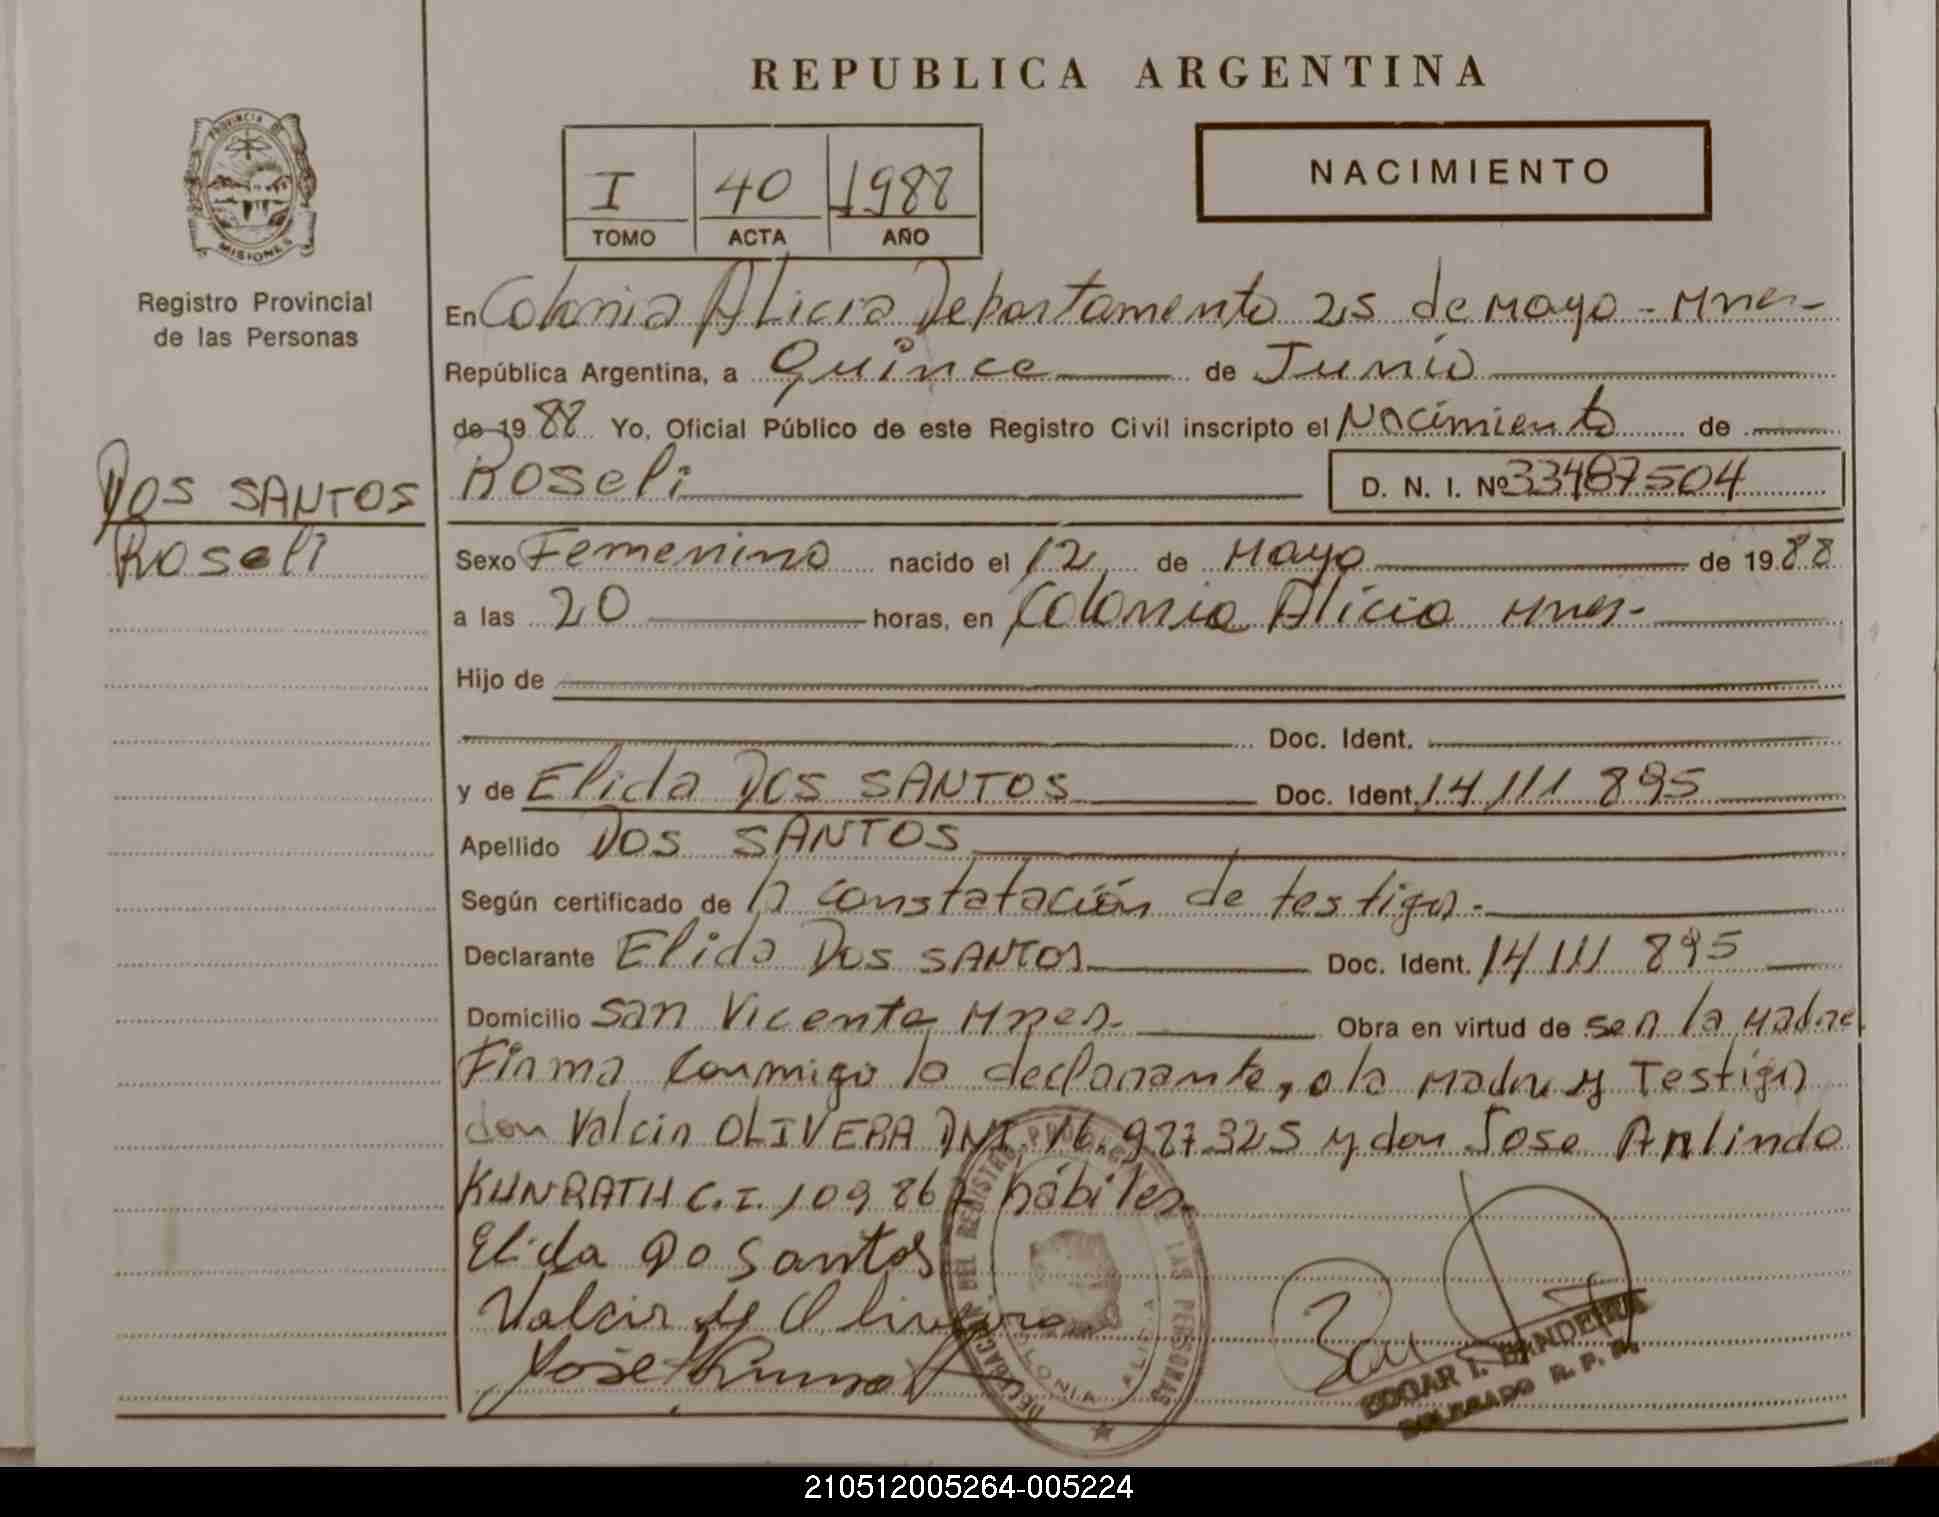 REPUBLICA ARGENTINA
PROVINCIA DE
MISIONES
Registro Provincial
de las Personas
I 40 1988
TOMO ACTA AÑO
NACIMIENTO
En Colonia Alicia Departamento 25 de Mayo - Mnes-
República Argentina, a Quince de Junio
de 19 88 Yo, Oficial Público de este Registro Civil inscripto el Nacimiento de
DOS SANTOS
Roseli
Roseli D. N. I. Nº 33487504
Sexo Femenino nacido el 12 de Mayo de 19 88
a las 20 horas, en Colonia Alicia Mnes-
Hijo de
Doc. Ident.
y de Elida DOS SANTOS Doc. Ident. 14 111 895
Apellido DOS SANTOS
Según certificado de la constatación de testigos-
Declarante Elida DOS SANTOS Doc. Ident. 14 111 895
Domicilio San Vicente Mnes- Obra en virtud de ser la Madre
Firma conmigo la declarante, o la Madre y Testigos
don Valcir OLIVERA DNI 16.987.325 y don Jose Arlindo
KUNRATH C.I. 109.867 hábiles
Elida Do Santos
Valcir de Oliveira
Jose
DELEGACION DEL REGISTRO PROVINCIAL DE LAS PERSONAS
COLONIA ALICIA
EDGAR I. BANDEIRA
DELEGADO R. P. P.
210512005264-005224